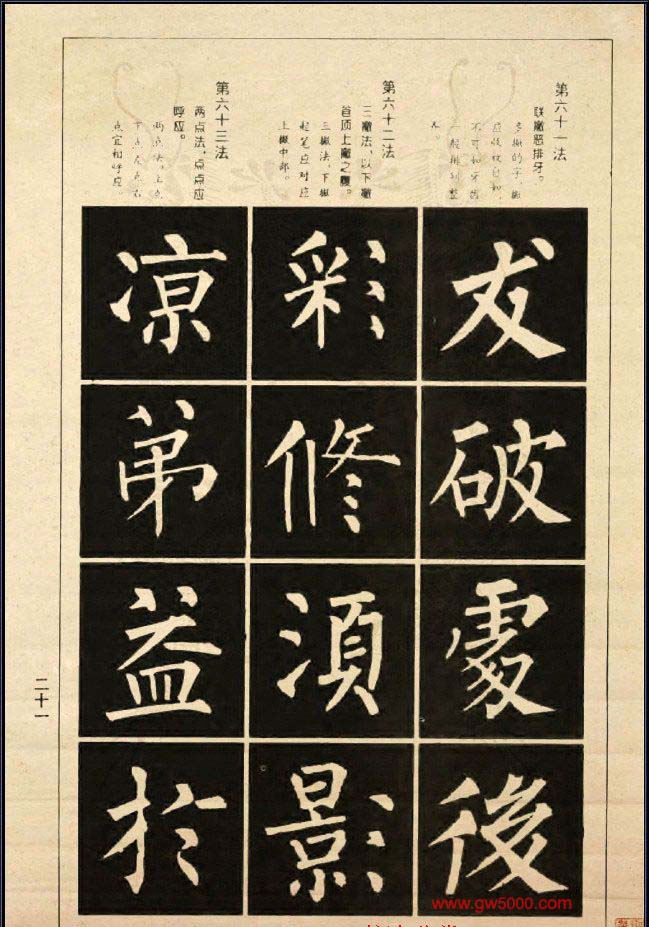 第六十一法
联撇恶排牙。
多撇的字，撇
应收放自如，
不可如牙齿
一般排列整
齐。
友
破
處
後
第六十二法
三撇法，以下撇
首顶上撇之腹。
三撇法，下撇
起笔应对应
上撇中部。
彩
修
須
影
第六十三法
两点法，点点应
呼应。
两点法，上点
下点左点右
点宜相呼应。
凉
弟
益
於
二十一
www.gw5000.com